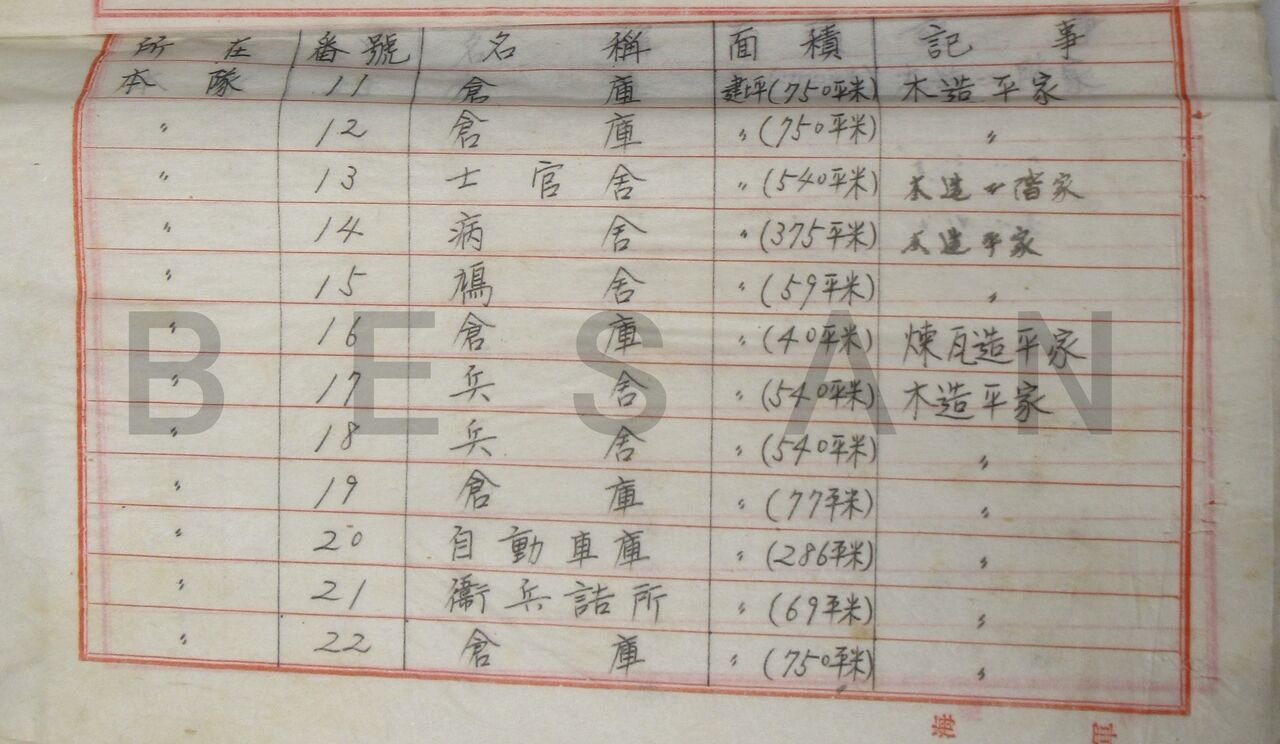 所在 番號 名稱 面積 記事
本隊 11 倉庫 建坪(750平米) 木造平家
〃 12 倉庫 〃(750平米) 〃
〃 13 士官舎 〃(540平米) 木造二階家
〃 14 病舎 〃(375平米) 木造平家
〃 15 鳩舎 〃(59平米) 〃
〃 16 倉庫 〃(40平米) 煉瓦造平家
〃 17 兵舎 〃(540平米) 木造平家
〃 18 兵舎 〃(540平米) 〃
〃 19 倉庫 〃(77平米) 〃
〃 20 自動車庫 〃(286平米) 〃
〃 21 衞兵詰所 〃(69平米) 〃
〃 22 倉庫 〃(750平米) 〃
BESAN
海